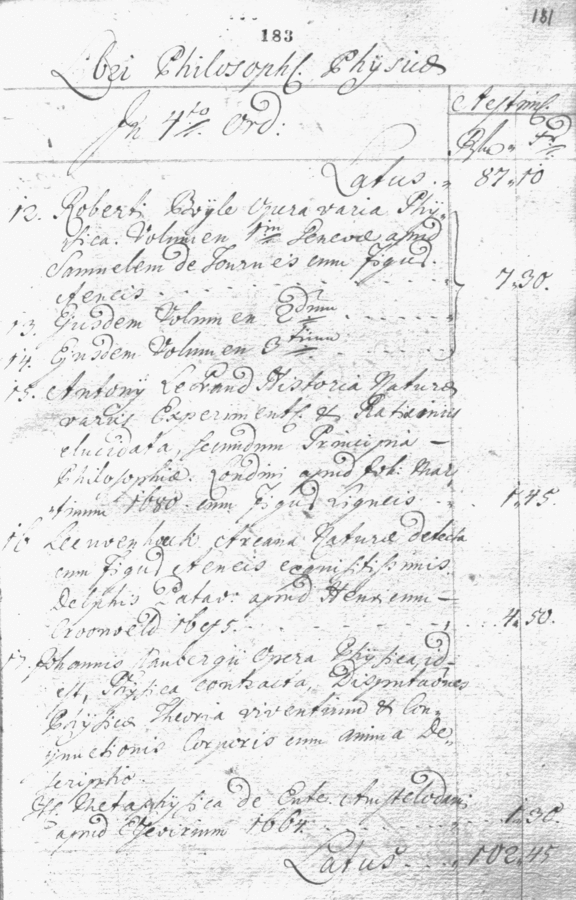 181
183
Libri Philosoph. Physicæ
Aestim.
In 4to Ord:
Rh. Xr
Latus . „ 87„10
12. Roberti Boyle Opera varia Phÿ-
sica. Volumen 1m Genevæ apud
Samuelem de Tournes cum Figur.
Aeneis . . . 7„30.
13. Ejusdem Volumen 2dum . . .
14. Ejusdem Volumen 3tium . . .
15. Antonÿ LeGrand Historia Naturæ
variis Experiments. & Rationiis
elucidata, secundum Principia —
Philosophiæ. Londini apud Joh: Mar,
tinum 1680. cum Figur. Ligneis . . 1„45
16 Leeuwenhoek Arcana Naturæ detecta
cum Figur. Aeneis exquisitissimis.
Delphis Batav: apud Henricum —
Croonveld 1695. . . . 4„50.
17. Johannis Opera Physica, id
est, Physica contracta, Disputationes
Physicæ Theoria viventium & Con„
junctionis Corporis cum anima De„
scriptio.
It. Metaphysica de Ente. Amstelodami
apud Elzevirium 1664. . . . 1„30.
Latus . . . „ 102„45